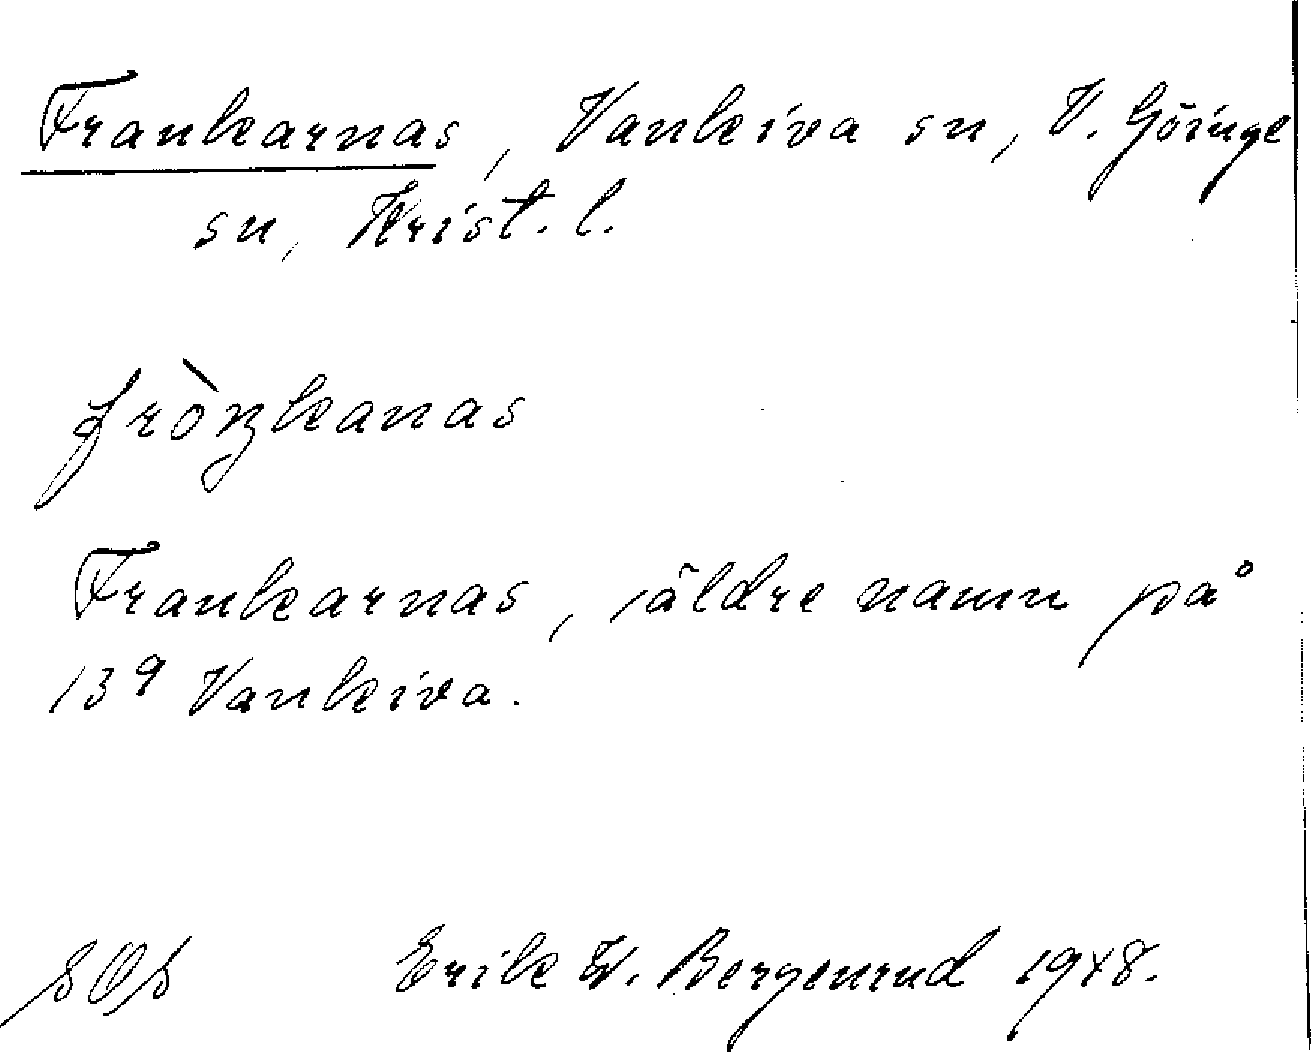 Frankarnas, Vankiva sn, V. Göinge
sn, Krist. l.
fròŋkanas
Frankarnas, äldre namn på
13⁹ Vankiva.
SOS
Erik W. Bergenrud 1948.